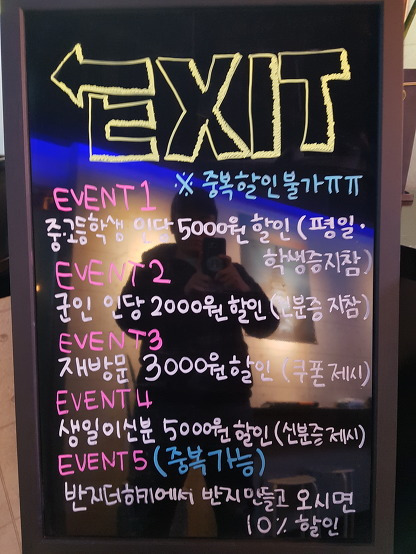 EXIT
※ 중복할인불가ㅠㅠ
EVENT 1
중고등학생 인당 5000원 할인 (평일.
학생증지참)
EVENT 2
군인 인당 2000원 할인 (신분증 지참)
EVENT 3
재방문 3000원 할인 (쿠폰 제시)
EVENT 4
생일이신분 5000원 할인 (신분증 제시)
EVENT 5 (중복가능)
반지더하기에서 반지만들고 오시면
10% 할인